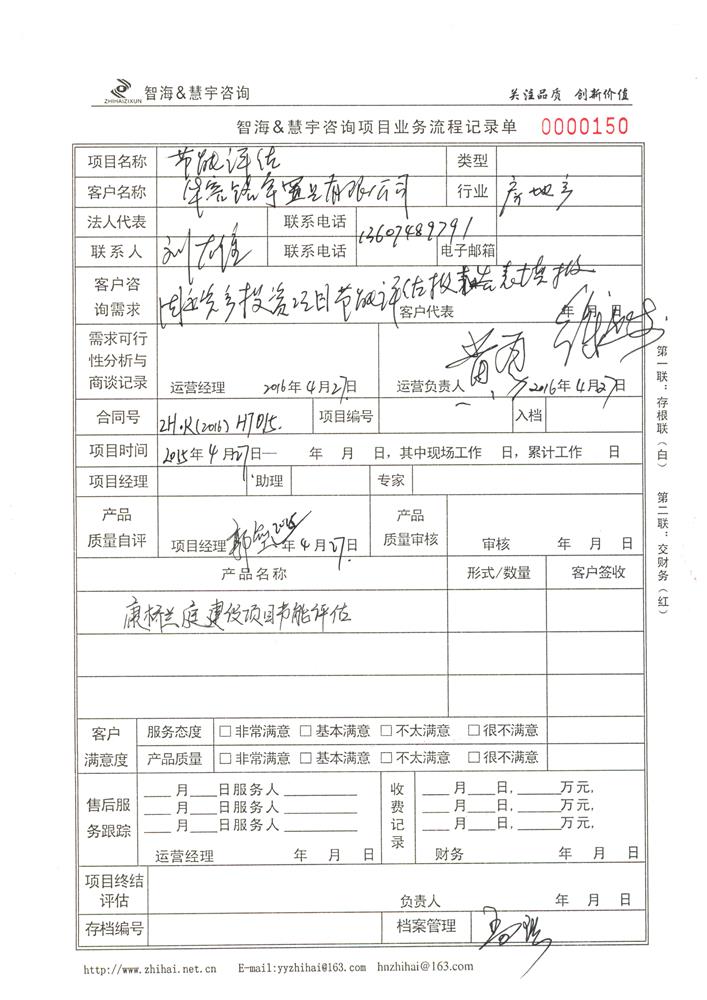 智海&慧宇咨询 关注品质 创新价值
ZHIHAIZIXUN
智海&慧宇咨询项目业务流程记录单 0000150
项目名称 节能评估 类型
客户名称 置业有限公司 行业 房地产
法人代表 联系电话 13607489791
联系人 刘 联系电话 电子邮箱
客户咨询需求 固定资产投资项目节能评估报告表填报 客户代表 年 月 日
需求可行性分析与商谈记录 运营经理 2016年4月27日 运营负责人 2016年4月27日
合同号 ZH.K(2016)H7015. 项目编号 入档
项目时间 2015年4月27日— 年 月 日,其中现场工作 日,累计工作 日
项目经理 助理 专家
产品质量自评 项目经理 2016年4月27日 产品质量审核 审核 年 月 日
产品名称 形式/数量 客户签收
康桥兰庭建设项目节能评估
客户满意度 服务态度 □非常满意 □基本满意 □不太满意 □很不满意
产品质量 □非常满意 □基本满意 □不太满意 □很不满意
售后服务跟踪 ___月___日服务人________ 收费记录 ___月___日,_____万元,
___月___日服务人________ ___月___日,_____万元,
___月___日服务人________ ___月___日,_____万元,
运营经理 年 月 日 财务 年 月 日
项目终结评估 负责人 年 月 日
存档编号 档案管理
http://www.zhihai.net.cn E-mail:yyzhihai@163.com hnzhihai@163.com
第一联：存根联（白） 第二联：交财务（红）